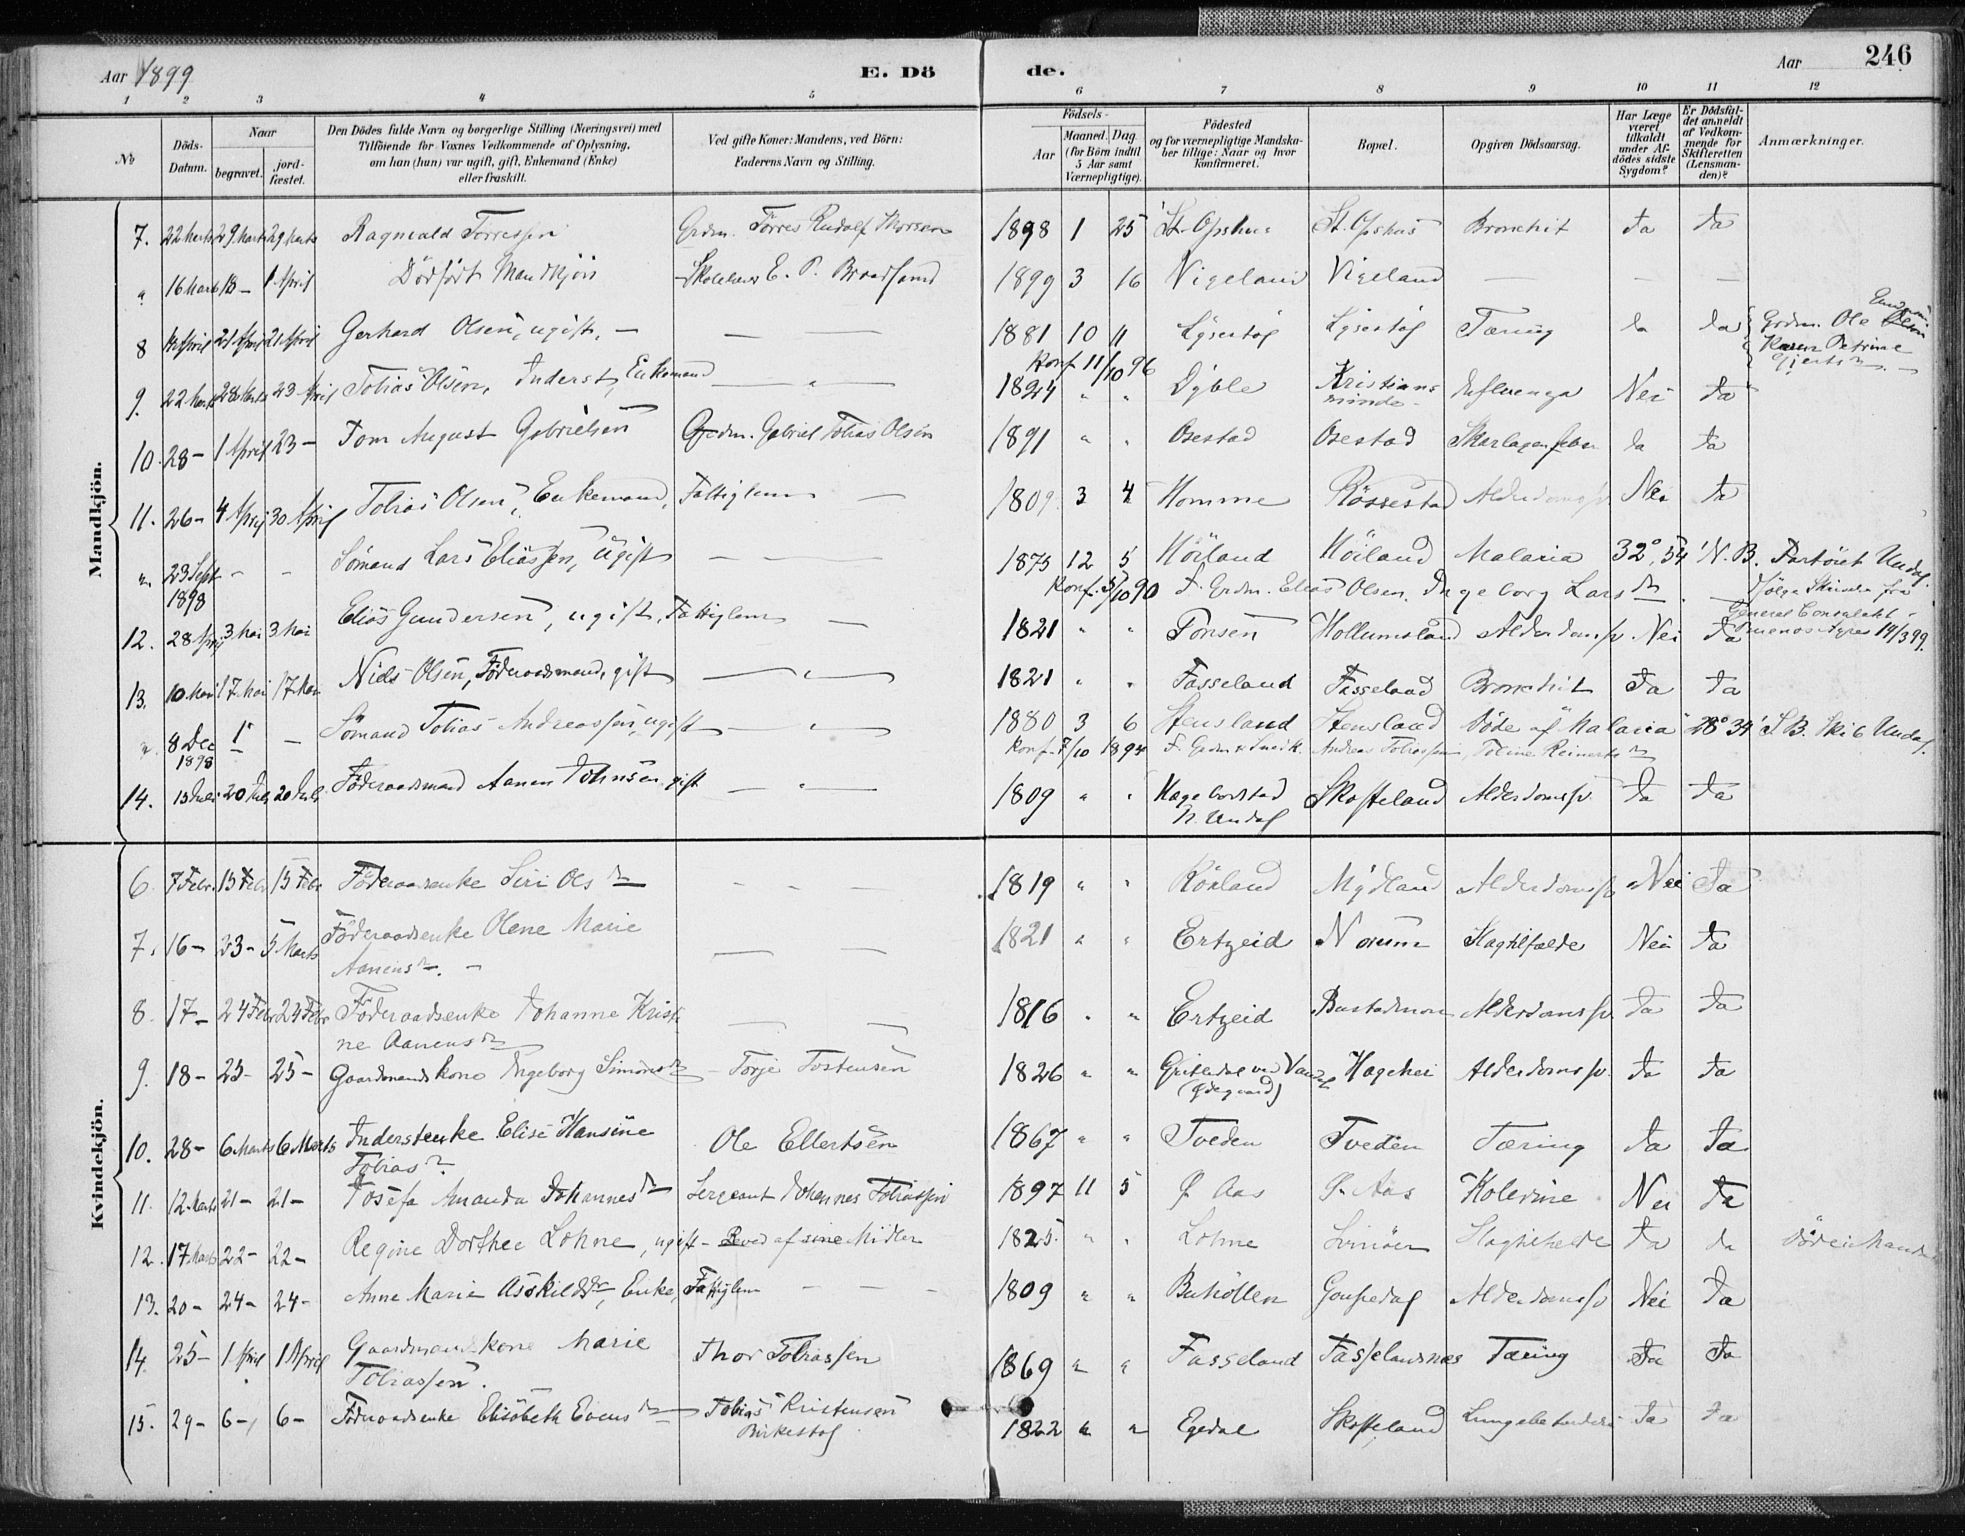 Aar 1899
E. Dö
de.
Aar
246
1 2 3 4 5 6 7 8 9 10 11 12
No
Döds-Datum.
Naar
begravet.
jord-fæstet.
Den Dödes fulde Navn og borgerlige Stilling (Næringsvei) med
Tilföiende for Voxnes Vedkommende af Oplysning,
om han (hun) var ugift, gift, Enkemand (Enke)
eller fraskilt.
Ved gifte Koner: Mandens, ved Börn:
Faderens Navn og Stilling.
Födsels-
Aar
Maaned. Dag.
(for Börn indtil 5 Aar samt Værnepligtige).
Födested
og for værnepligtige Mandskaber tillige: Naar og hvor konfirmeret.
Bopæl.
Opgiven Dödsaarsag.
Har Læge været tilkaldt under Afdödes sidste Sygdom?
Er Dödsfaldet anmeldt af Vedkommende for Skifteretten (Lensmanden)?
Anmærkninger.
Mandkjön.
7. 22 Marts 29 Marts 29 Marts Ragnvald Torressen Grdm. Törres Rudolf 1898 1 25 St. Opshus St. Opshus Bronchit Ja Ja
" 16 Marts 18 - 1 April Dödfödt Mandkjön E. P. Braadland 1899 3 16 Vigeland Vigeland — — —
8 14 April 21 April 21 April Gerhard Olsen, ugift. — — — 1881 10 11 Lysestöl Lysestöl Tæring Ja Ja Grdm. Ole
Konf 11/10 96
Karen Petrine
9. 22 Marts 28 Marts 23 April Tobias Olsen, Inderst, Enkemand — " — 1824 " " Dyble Kristians minde Influenza Nei Ja
10. 28 - 1 April 23 - Tom August Gabrielsen Grdm. Gabriel Tobias Olsen 1891 " " Osestad Osestad Skarlagensfeber Ja Ja
11. 26 - 4 April 30 April Tobias Olsen, Enkemand, Fattiglem — 1809 3 4 Homme Rössestad Alderdomssv. Nei Ja
" 23 Sept 1898 - - Sömand Lars Eliassen, Ugift — — — 1875 12 5 Höiland Höiland Malaria 32°, 54' N. B. Fartöiet Undal.
Konf. 5/10 90 F. Grdm. Elias Olsen, Ingeborg Larsdr. — Ifölge Skrivelse fra
General Consulatet
Buenos Ayres 14/3 99.
12. 28 April 3 Mai 3 Mai Elias Gundersen, ugift, Fattiglem — 1821 " " Tonsen Hollumsland Alderdomssv. Nei Ja
13. 10 Mai 17 Mai 17 Mai Niels Olsen, Föderaadsmand, gift — " — 1821 " " Fasseland Fasseland Bronchit Ja Ja
" 8 Dec 1898 1 — Sömand Tobias Andreassen, ugift — " — 1880 3 6 Stensland Stensland Döde af "Malaria" 28° 34' S. B. Skib Undal.
Konf. 7/10 1894 F. Grdm. & Smed Andreas Tobiassen, Toline Reinertsdr
14. 13 Juli 20 Juli 20 Juli Föderaadsmand Aanen Johnsen, gift — " — 1809 " " Hægebostad N. Undal Skofteland Alderdomssv. Ja Ja
Kvindekjön.
6. 7 Febr. 15 Febr 15 Febr Föderaadsenke Siri Olsdr — — — 1819 " " Röiland Mydland Alderdomssv Nei Ja
7. 16 - 23 - 5 Marts Föderaadsenke Olene Marie
Aanensdr. — — — 1821 " " Ertzeid Norum Slagtilfælde Nei Ja
8. 17 - 24 Febr 24 Febr Föderaadsenke Johanne Kristi
ne Aanensdr — — 1816 " " Ertzeid Alderdomssv. Ja Ja
9. 18 - 25 - 25 - Gaardmandskone Ingeborg Simonsdr - Torje Tostensen 1826 " " Hagehei Alderdomssv. Ja Ja
(Ödegaard)
10. 28 - 6 Marts 6 Marts Inderstenke Elise Hansine
Tobiasdr. Ole Ellertsen 1867 " " Tveden Tveden Tæring Ja Ja
11. 12 Marts 21 - 21 - Josefa Amanda Johannesdr Sergeant Johannes Tobiassen 1897 11 5 Ö. Aas Ö. Aas Kolerine Nei Ja
12. 17 Marts 22 - 22 - Regine Dorthee Lohne, ugift - Leved af sine Midler 1825 " " Lohne Svinöen Slagtilfælde Ja Ja Döde i Mandal
13. 20 - 24 - 24 - Anne Marie Asskildsdr, Enke, Fattiglem — — 1809 " " Buhölen Alderdomssv Nei Ja
14. 25 - 1 April 1 April Gaardmandskone Marie
Tobiassen. Thor Tobiassen 1869 " " Fasseland Fasselandsnes Tæring Ja Ja
15. 29 - 6 - 6 - Föderaadsenke Elisabeth Evensdr — Tobias Kristensen
Birkestöl 1822 " " Egedal Skofteland Lungebetændelse Ja Ja